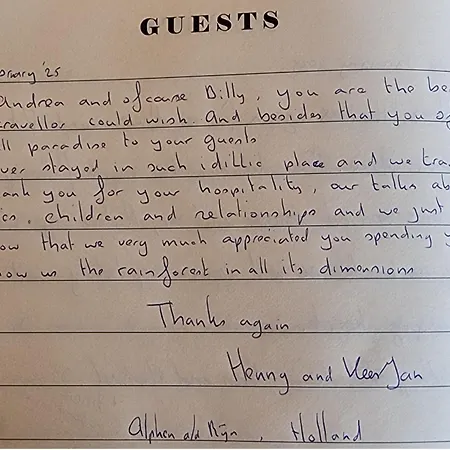 GUESTS
bruary '25
Andrea and ofcause Billy, you are the be
traveller could wish and besides that you o
ll paradise to your guests
ver stayed in such idillic place and we tra
ank you for your hospitality, our talks ab
cs, children and relationships and we just
ow that we very much appreciated you spending y
how us the rainforest in all its dimensions
Thanks again
Henny and KeesJan
Alphen a/d Rijn, Holland